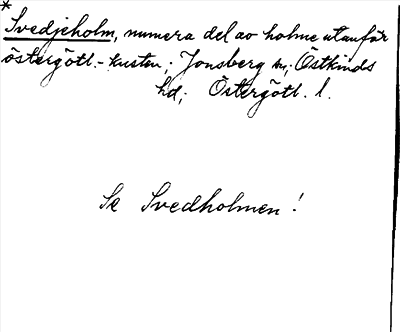 *
Svedjeholm, numera del av holme utanför
östergötl.-kusten; Jonsberg sn; Östkinds
hd; Östergötl. l.
Se Svedholmen!